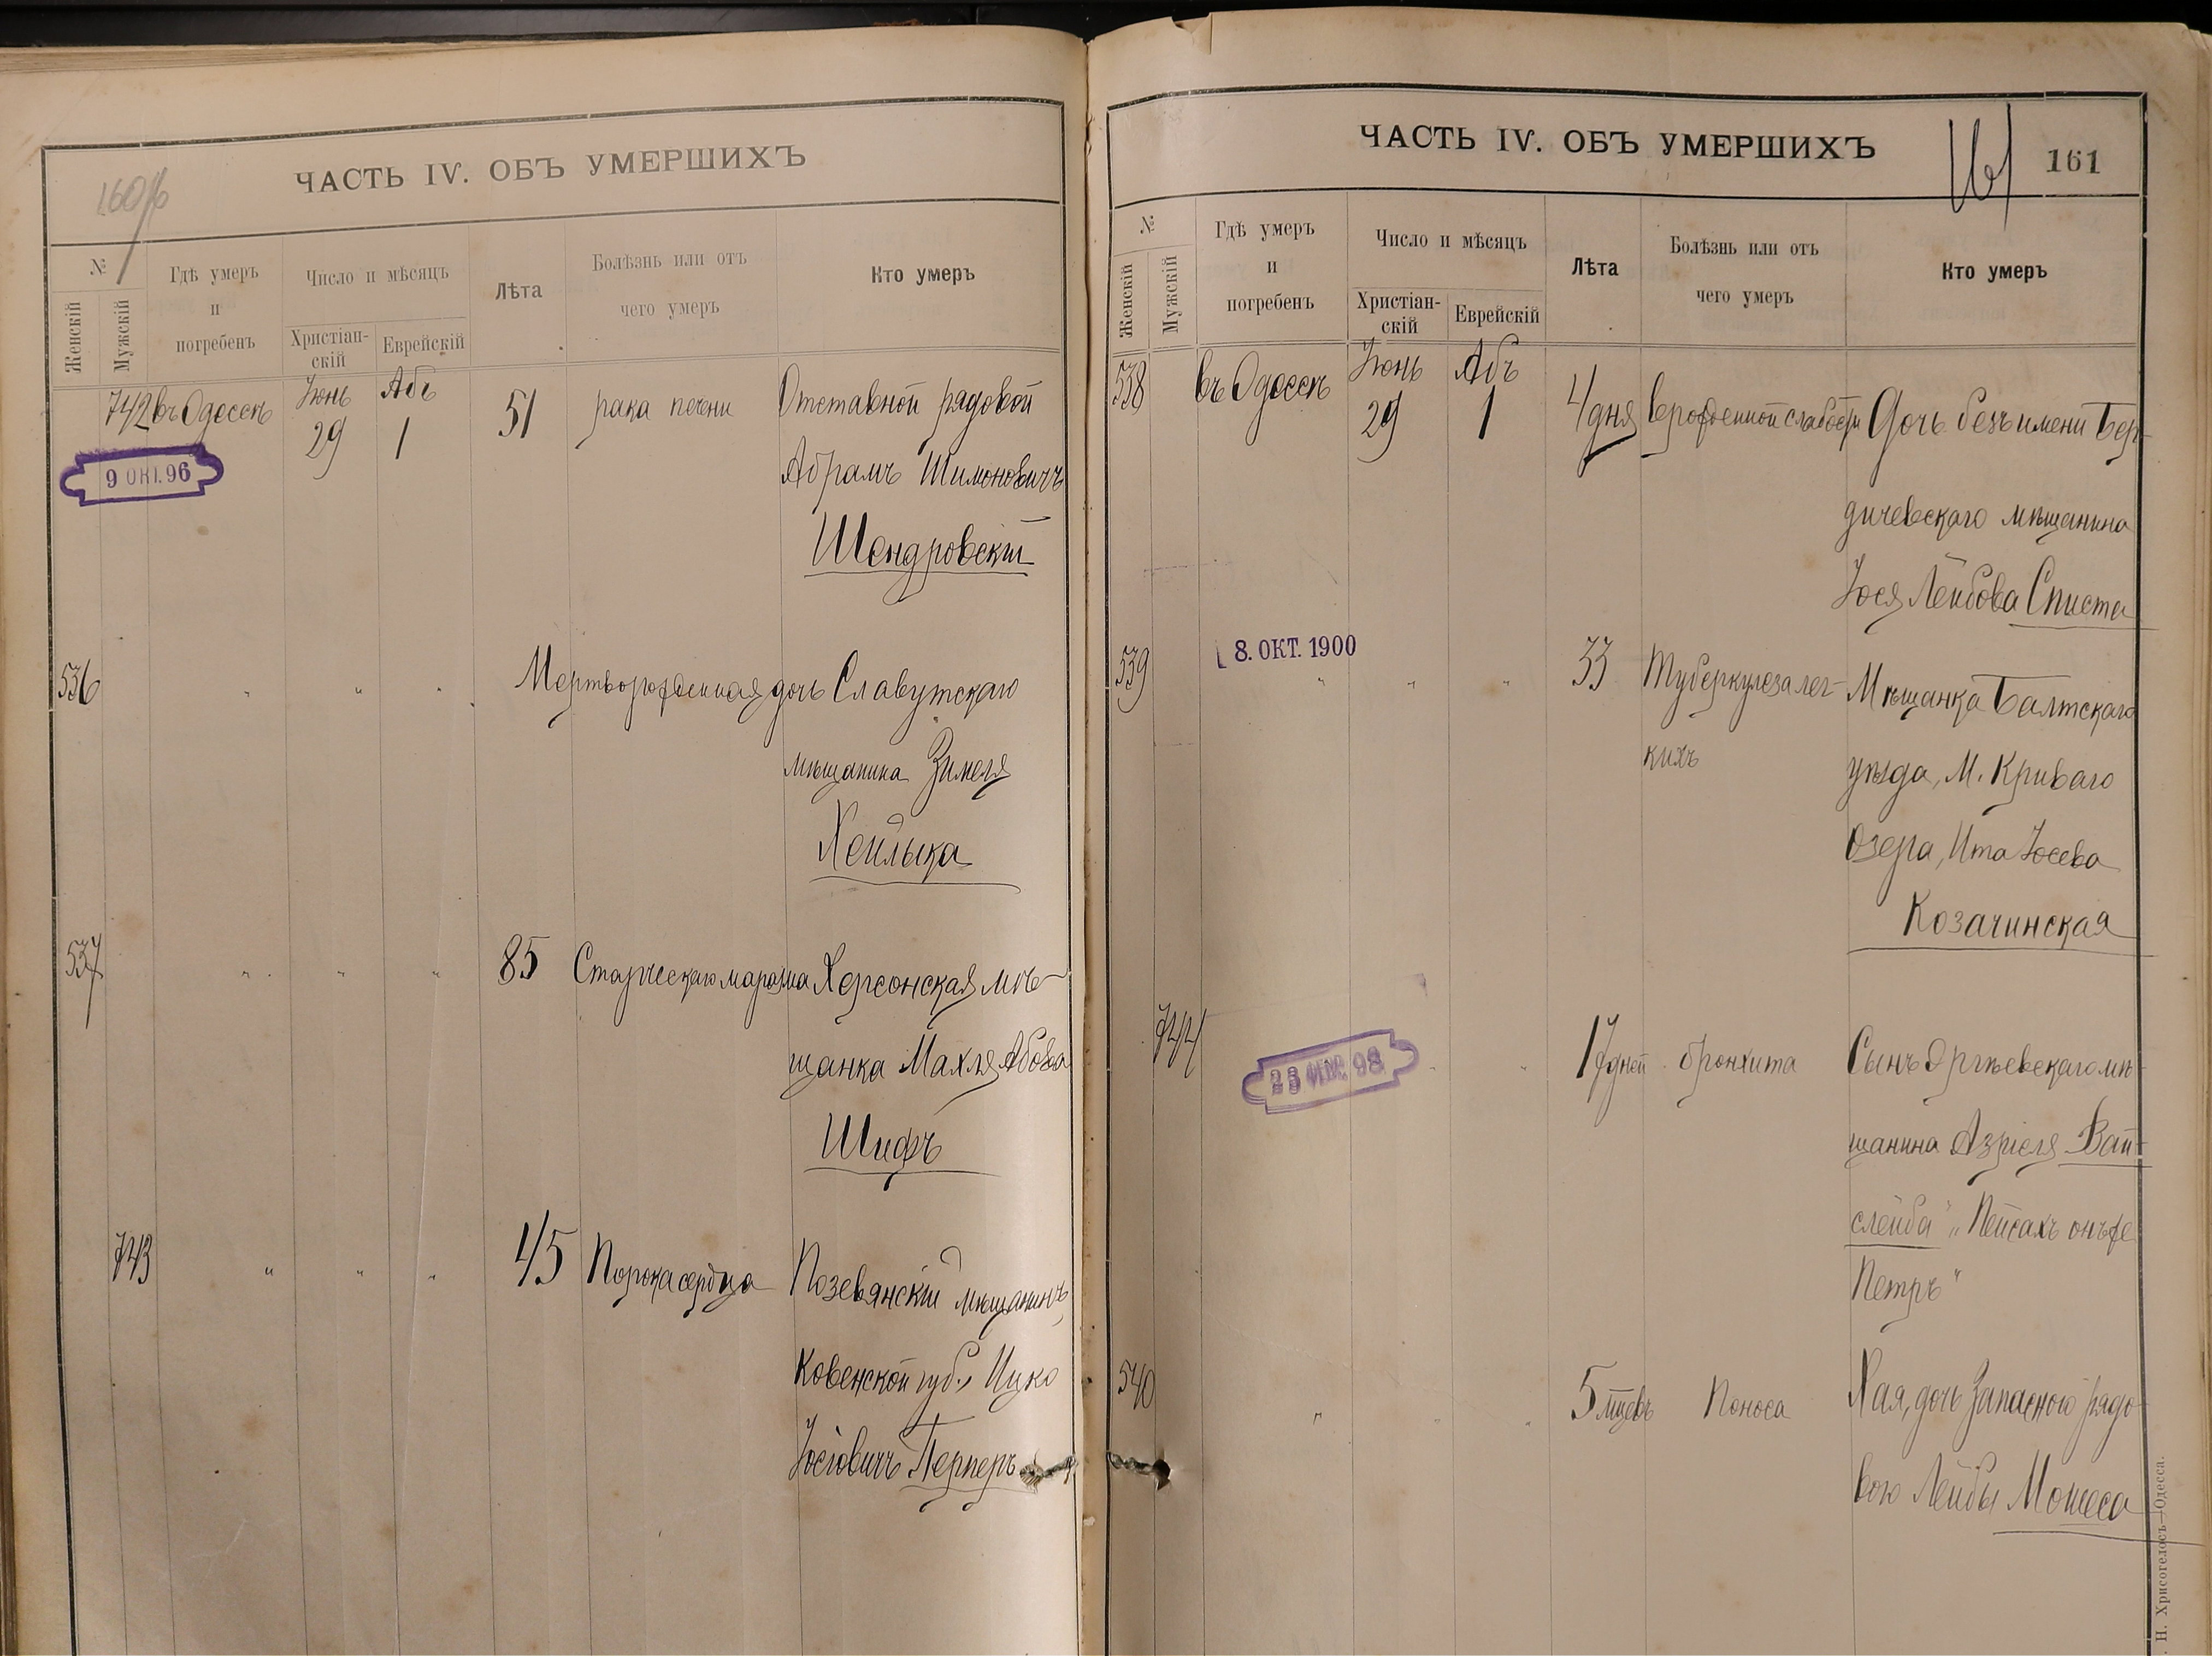 160 об
ЧАСТЬ IV. ОБЪ УМЕРШИХЪ
№
Женскій
Мужскій
Гдѣ умеръ
и
погребенъ
Число и мѣсяцъ
Христіан-
скій
Еврейскій
Лѣта
Болѣзнь или отъ
чего умеръ
Кто умеръ
742 въ Одессѣ Іюнь 29 Абъ 1 51 рака печени Отставной рядовой
9 ОКТ. 96
Абрамъ Шимоновичъ
Шендровскій
536 " " " Мертворожденная дочь Славутскаго
мѣщанина Зимеля
Хейлыка
537 " " " 85 Старческаго маразма Херсонская мѣ-
щанка Махля Абова
Шифъ
743 " " " 45 Порока сердца Позевянскій мѣщанинъ,
Ковенской губ., Ицко
Іосіовичъ Перперъ
ЧАСТЬ IV. ОБЪ УМЕРШИХЪ
161
161
№
Женскій
Мужскій
Гдѣ умеръ
и
погребенъ
Число и мѣсяцъ
Христіан-
скій
Еврейскій
Лѣта
Болѣзнь или отъ
чего умеръ
Кто умеръ
538 въ Одессѣ Іюнь 29 Абъ 1 4 дня врожденной слабости Дочь безъ имени Бер-
дичевскаго мѣщанина
Іося Лейбова Списта
8. ОКТ. 1900
539 " " " 33 Туберкулеза лег- Мѣщанка Балтскаго
кихъ уѣзда, М. Криваго
Озера, Ита Іосева
Козачинская
744 " " 17 дней бронхита Сынъ Оргѣевскаго мѣ-
23 ФЕВ. 98
щанина Азріеля Вай-
слейба "Пейсахъ онъ же
Петръ"
540 " " " 5 мцевъ Поноса Хая, дочь Запасного рядо-
вого Лейбы Мошеса
Н. Хрисогелосъ—Одесса.